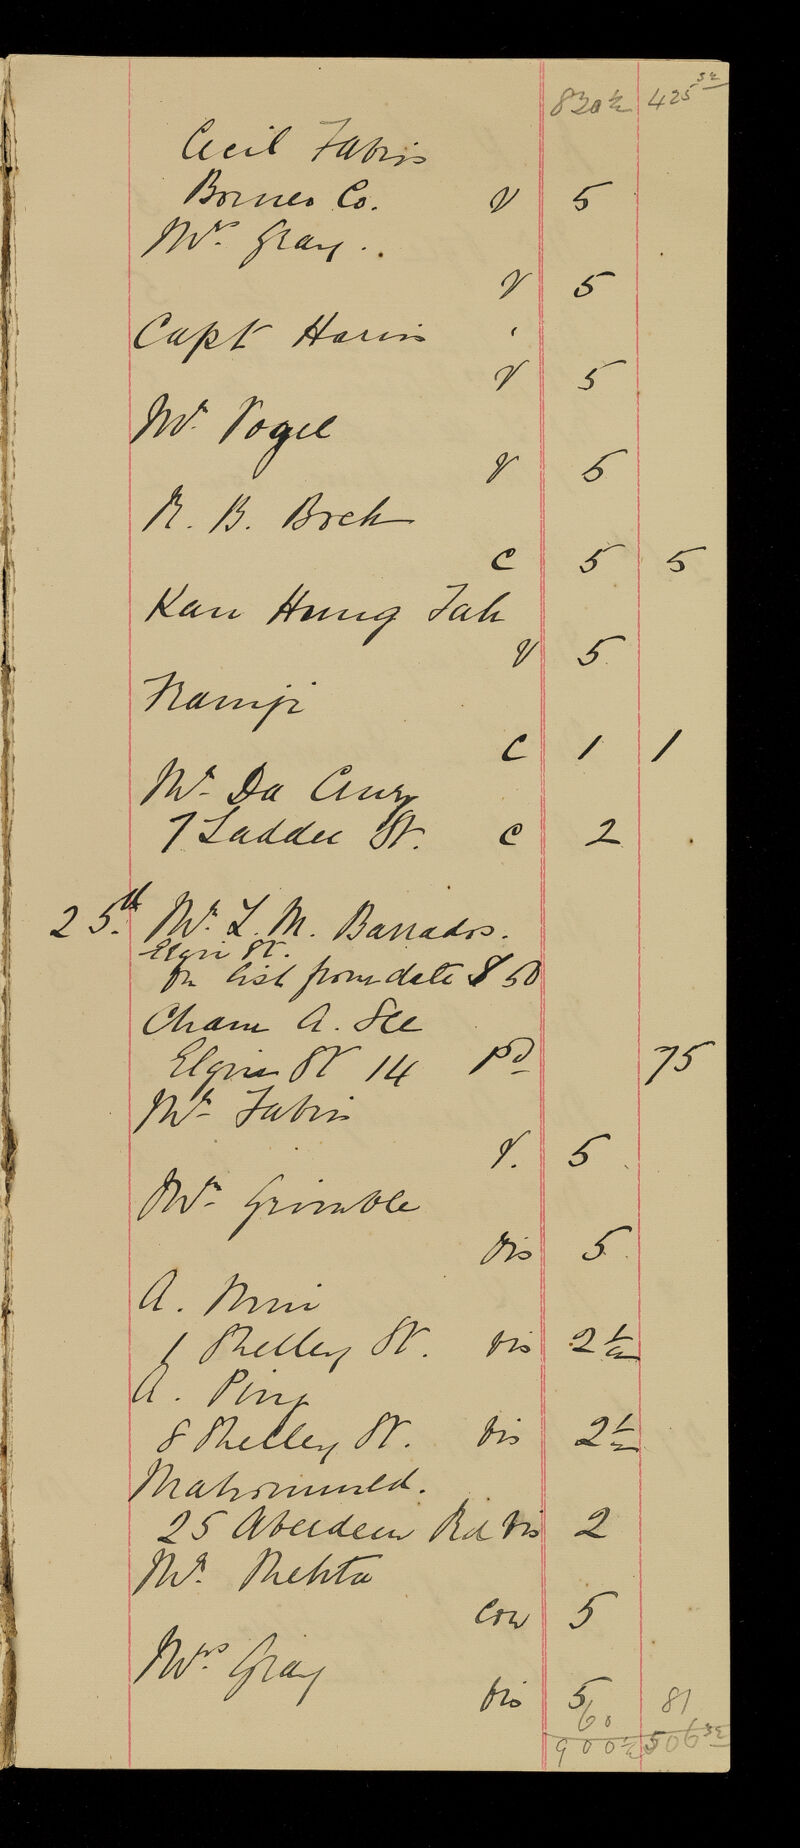 830½ 425 50
Cecil Fabris
Borneo Co. V 5
Mr. Gray.
V 5
Capt Harris
V 5
Mr. Vogel
V 5
R. B. Boch
C 5 5
Kan Hung Tah
V 5
Framji
C 1 1
Mr. Da Cruz
7 Ladder St. C 2
25th Mr. L. M. Barrados.
Elgin St.
on list from date $50
Cham A. See
Elgin St 14 pd 75
Mr. Fabris
V. 5
Mr. Grimble
Vis 5
A.
1 Shelley St. Vis 2½
A. Ping
8 Shelley St. Vis 2½
Mahommed.
25 Aberdeen Rd Vis 2
Mr. Mehta
Con 5
Mrs. Gray
Vis 5
60 81
900½ 506